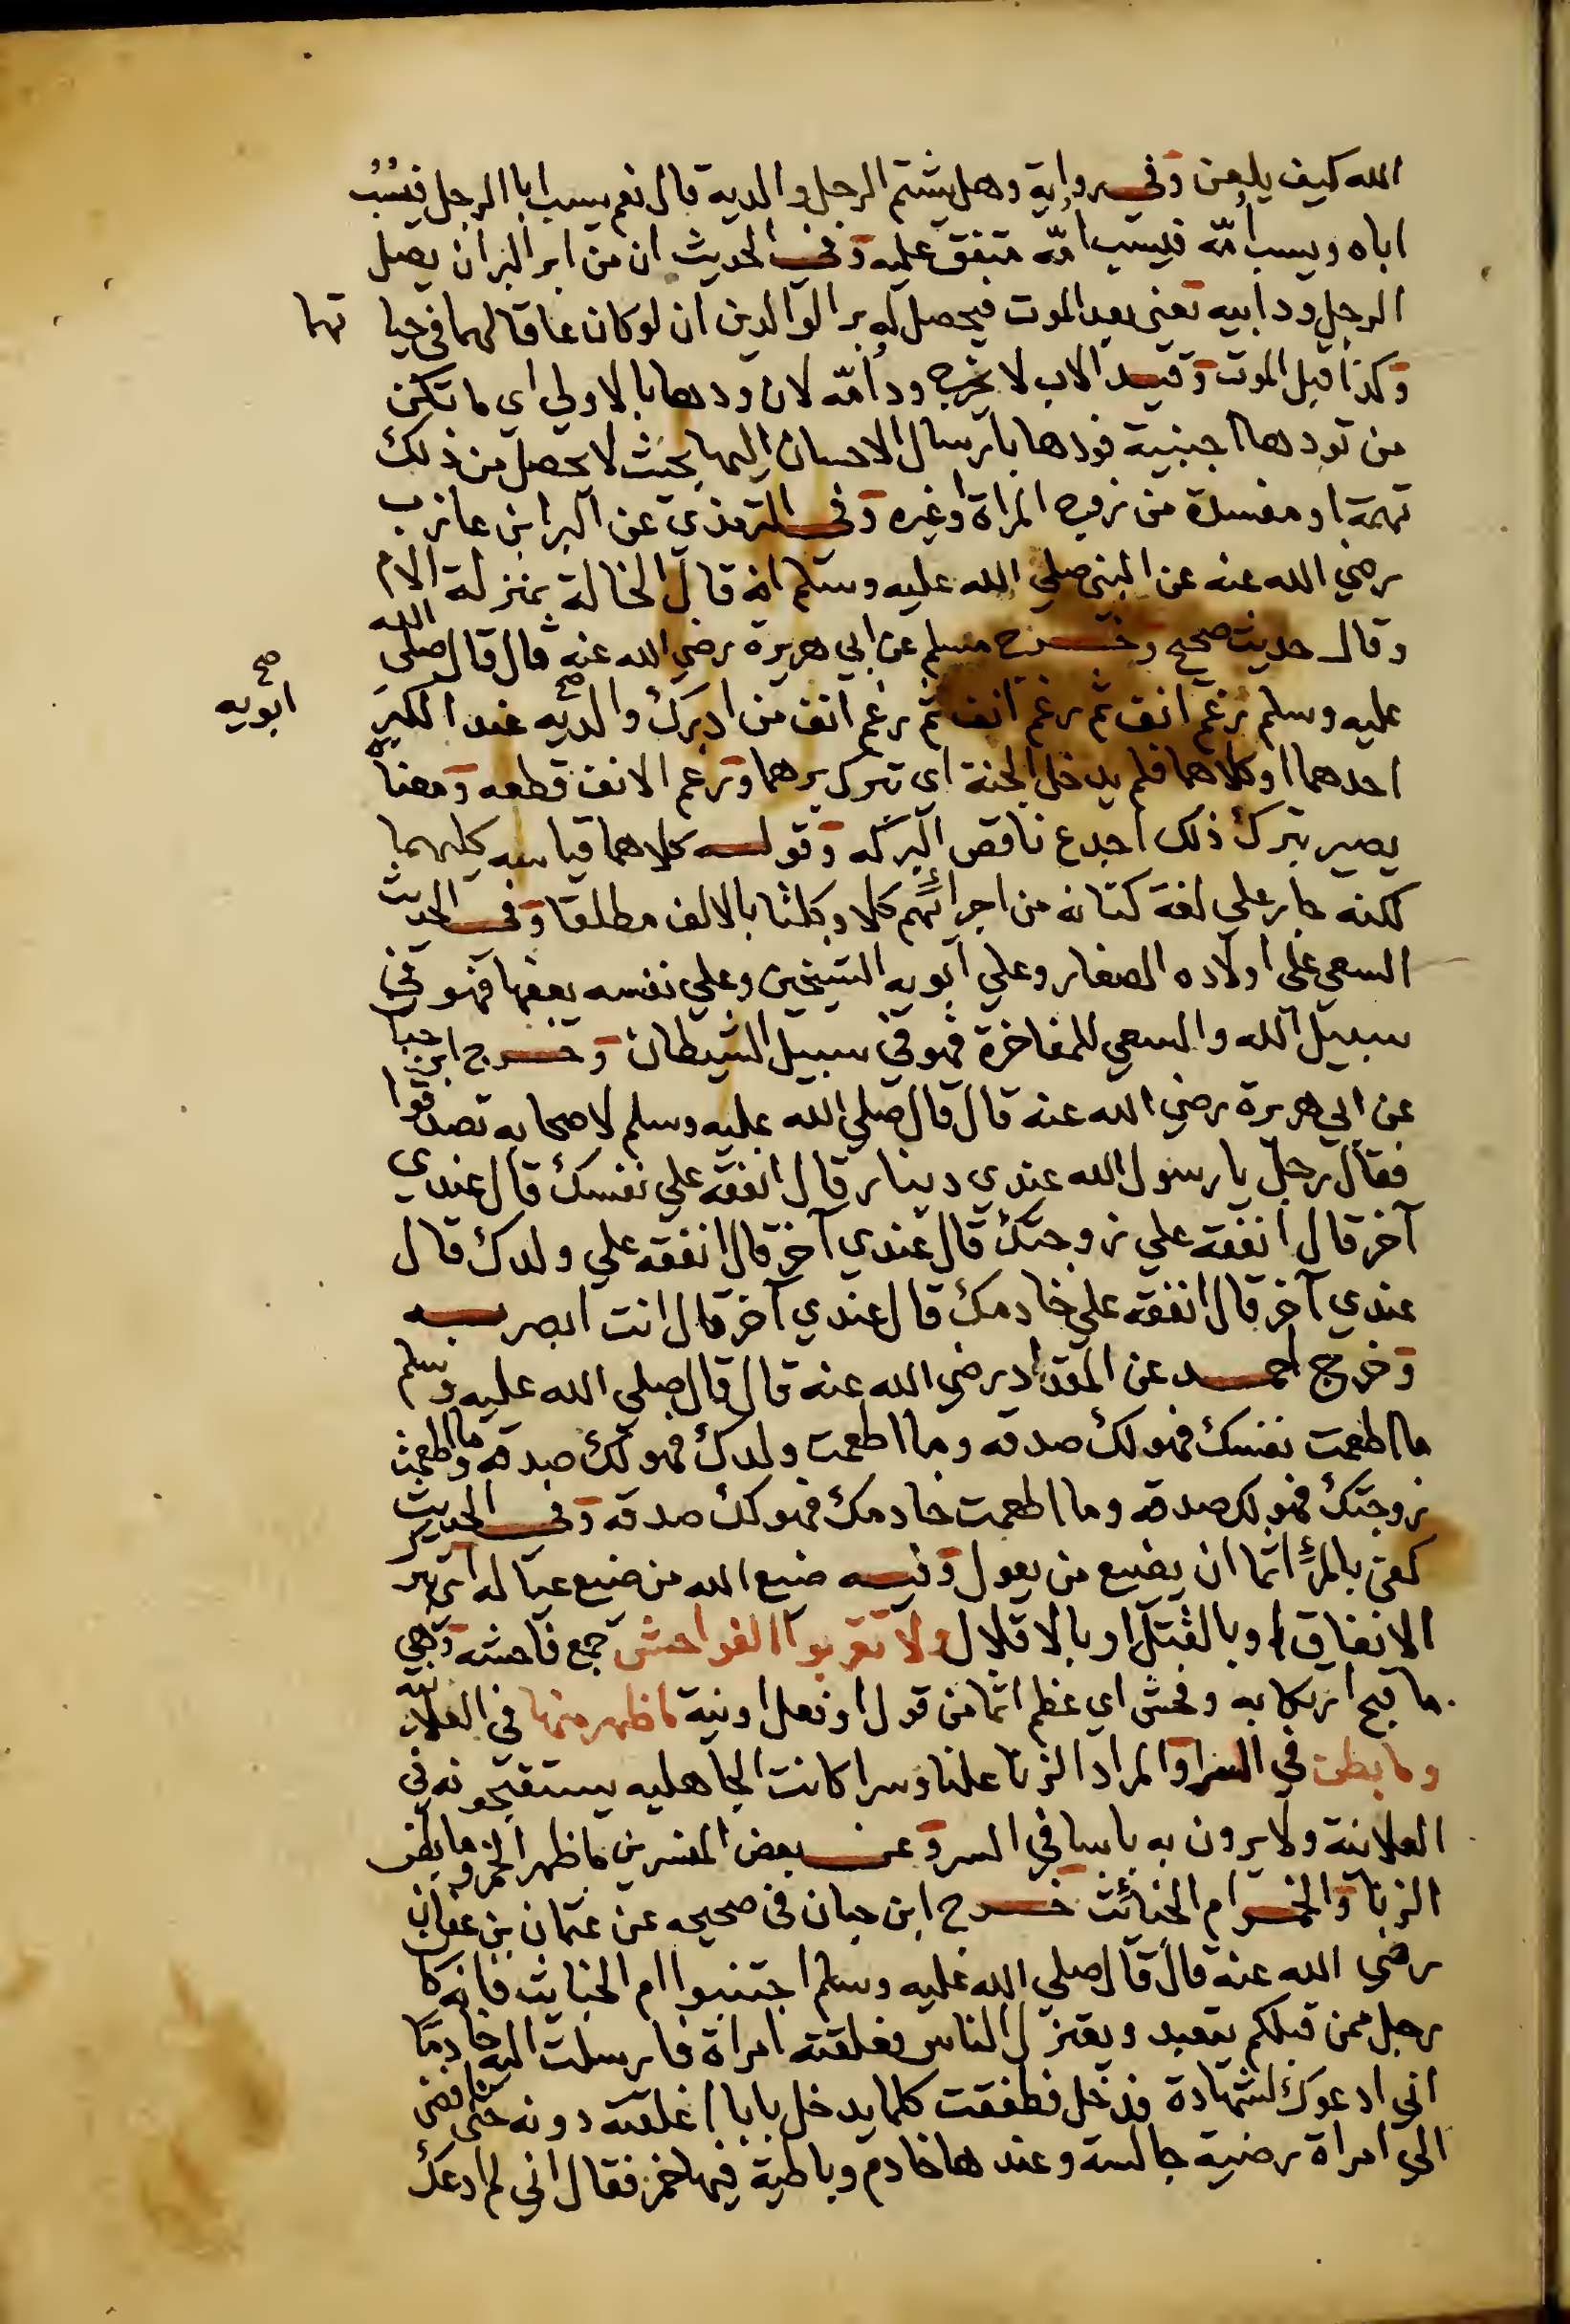 الله كيف يلعن وفي رواية وهل يشتم الرجل والديه قال نعم يسب ابا الرجل فيسُبُّ
اباه ويسب أمّه فيسب أمّه متفق عليه وفي الحديث ان من ابر البر ان يصل
الرجل ود ابيه يعني بعد الموت فيحصل له بر الوالدين ان لو كان عاقا لهما في حيا تهما
وكذا قبل الموت وقيد الاب لا يخرج ود أمّه لان ودها بالاولى اي ما تكن
من تودها اجنبية فودها بارسال الاحسان اليها بحيث لا يحصل من ذلك
تهمة او مفسدة من زوج المراة او غيره وفي الترمذي عن البرا بن عازب
رضي الله عنه عن النبي صلي الله عليه وسلم انه قال الخالة بمنزلة الام
وقال حديث صحيح وخرج مسلم عن ابي هريرة رضي الله عنه قال قال صلى الله
عليه وسلم رغم انف ثم رغم انف ثم رغم انف من ادرك والديه عند الكبر
صح
ابويه
احدهما او كلاهما فلم يدخل الجنة اي بترك برهما ورغم الانف قطعه ومعناه
يصير بترك ذلك اجدع ناقص البركه وقوله كلاهما قياسه كليهما
لكنه جار علي لغة كنانه من اجرائهم كلا وكلتا بالالف مطلقا وفي الحديث
السعي على اولاده الصغار وعلي ابويه الشيخين وعلي نفسه يعفها فهو في
سبيل الله والسعي للمفاخرة فهو في سبيل الشيطان وخرج ابن حبا
عن ابي هريرة رضي الله عنه قال قال صلي الله عليه وسلم لاصحابه تصدقوا
فقال رجل يا رسول الله عندي دينار قال انفقه علي نفسك قال عندي
آخر قال انفقه علي زوجتك قال عندي آخر قال انفقه علي ولدك قال
عندي آخر قال انفقه علي خادمك قال عندي آخر قال انت ابصر به
وخرج احمد عن المقداد رضي الله عنه قال قال صلي الله عليه وسلم
ما اطعمت نفسك فهو لك صدقه وما اطعمت ولدك فهو لك صدقة وما اطعمت
زوجتك فهو لك صدقه وما اطعمت خادمك فهو لك صدقه وفي الحديث
كفى بالمرءِ اثما ان يضيع من يعول وفيه ضيع الله من ضيع عياله اي بترك
الانفاق او بالقتل او بالاقلال ولا تقربوا الفواحش جمع فاحشه وهي
ما قبح ارتكابه وفحش اي عظم اثما من قول او فعل او نية ما ظهر منها في العلانيه
وما بطن في السر والمراد الزنا علنا وسرا كانت الجاهليه يستقبحونه في
العلانية ولا يرون به باسا في السر وعن بعض المفسرين ما ظهر الخمر وما بطن
الزنا والخمر ام الخبائث خرج ابن حبان في صحيحه عن عثمان بن عفان
رضي الله عنه قال قال صلي الله عليه وسلم اجتنبوا ام الخبائث فانه كا
رجل ممن قبلكم يتعبد ويعتزل الناس فعلقته امراة فارسلت اليه خادمًا
اني ادعوك لشهادة فدخل فطفقت كلما يدخل بابا اغلقته دونه حتى افضى
الي امراة رضية جالسة وعندها خادم وباطية فيها خمر فقال اني لم ادعك